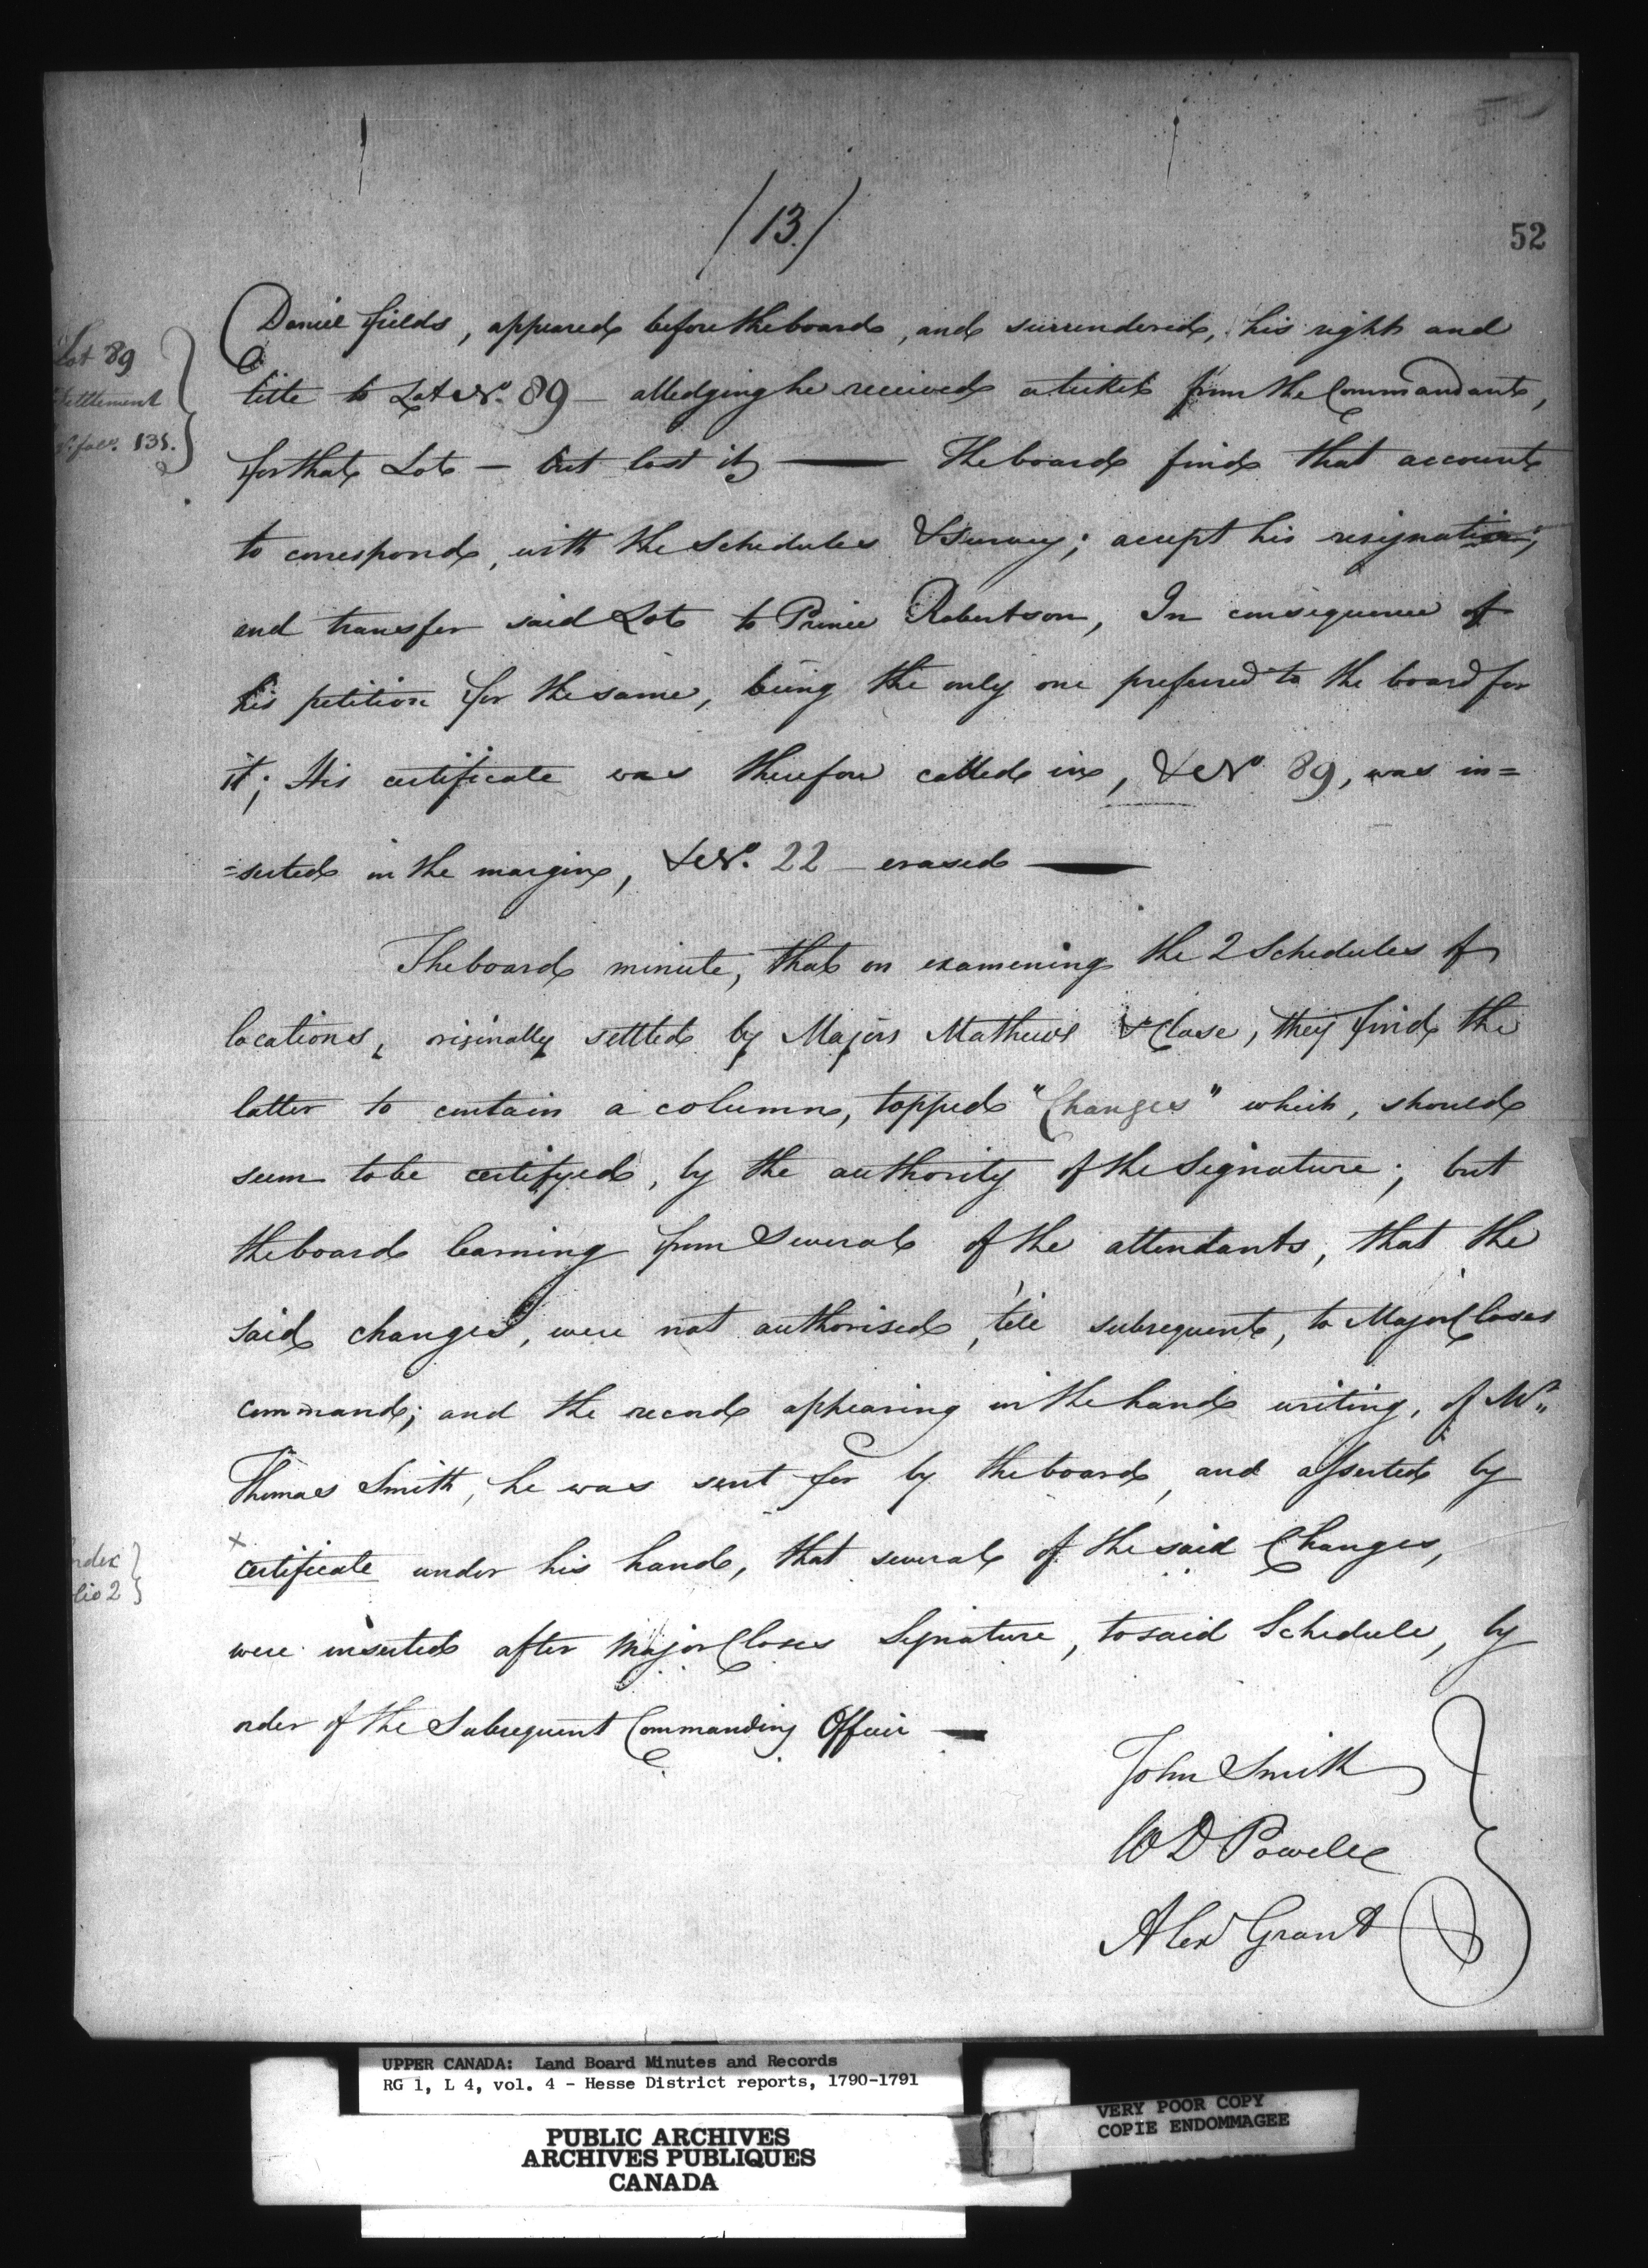 (13.)
52
Daniel Fields, appeared before the board, and surrendered, his right and
title to Lot No. 89 – alledging he received a ticket from the Commandant,
for that Lot – but lost it — The board find that account
to correspond, with the Schedules & Survey; accept his resignation;
and transfer said Lot to Prince Robertson, In consequence of
his petition for the same, being the only one preferred to the board for
it; His certificate was therefore called in, & No. 89, was in=
=serted in the margin, & No. 22 – erased —
The board minute, that on examening the 2 Schedules of
locations, originally settled by Majors Mathews & Close, they find the
latter to contain a column, topped "Changes" which, should
seem to be certifyed, by the authority of the Signature; but
the board learning from Several of the attendants, that the
said changes, were not authorised, 'till subsequent, to Major Closes
command; and the record appearing in the hand writing, of Mr.
Thomas Smith, he was sent for by the board, and asserted by
x
certificate under his hand, that several of the said Changes,
were inserted after Major Closes Signature, to said Schedule, by
order of the Subsequent Commanding Officer —
John Smith
W D Powell
Alex Grant
Lot 89
Settlement
135.
ndex
lio 2
UPPER CANADA: Land Board Minutes and Records
RG 1, L 4, vol. 4 - Hesse District reports, 1790-1791
PUBLIC ARCHIVES
ARCHIVES PUBLIQUES
CANADA
VERY POOR COPY
COPIE ENDOMMAGEE